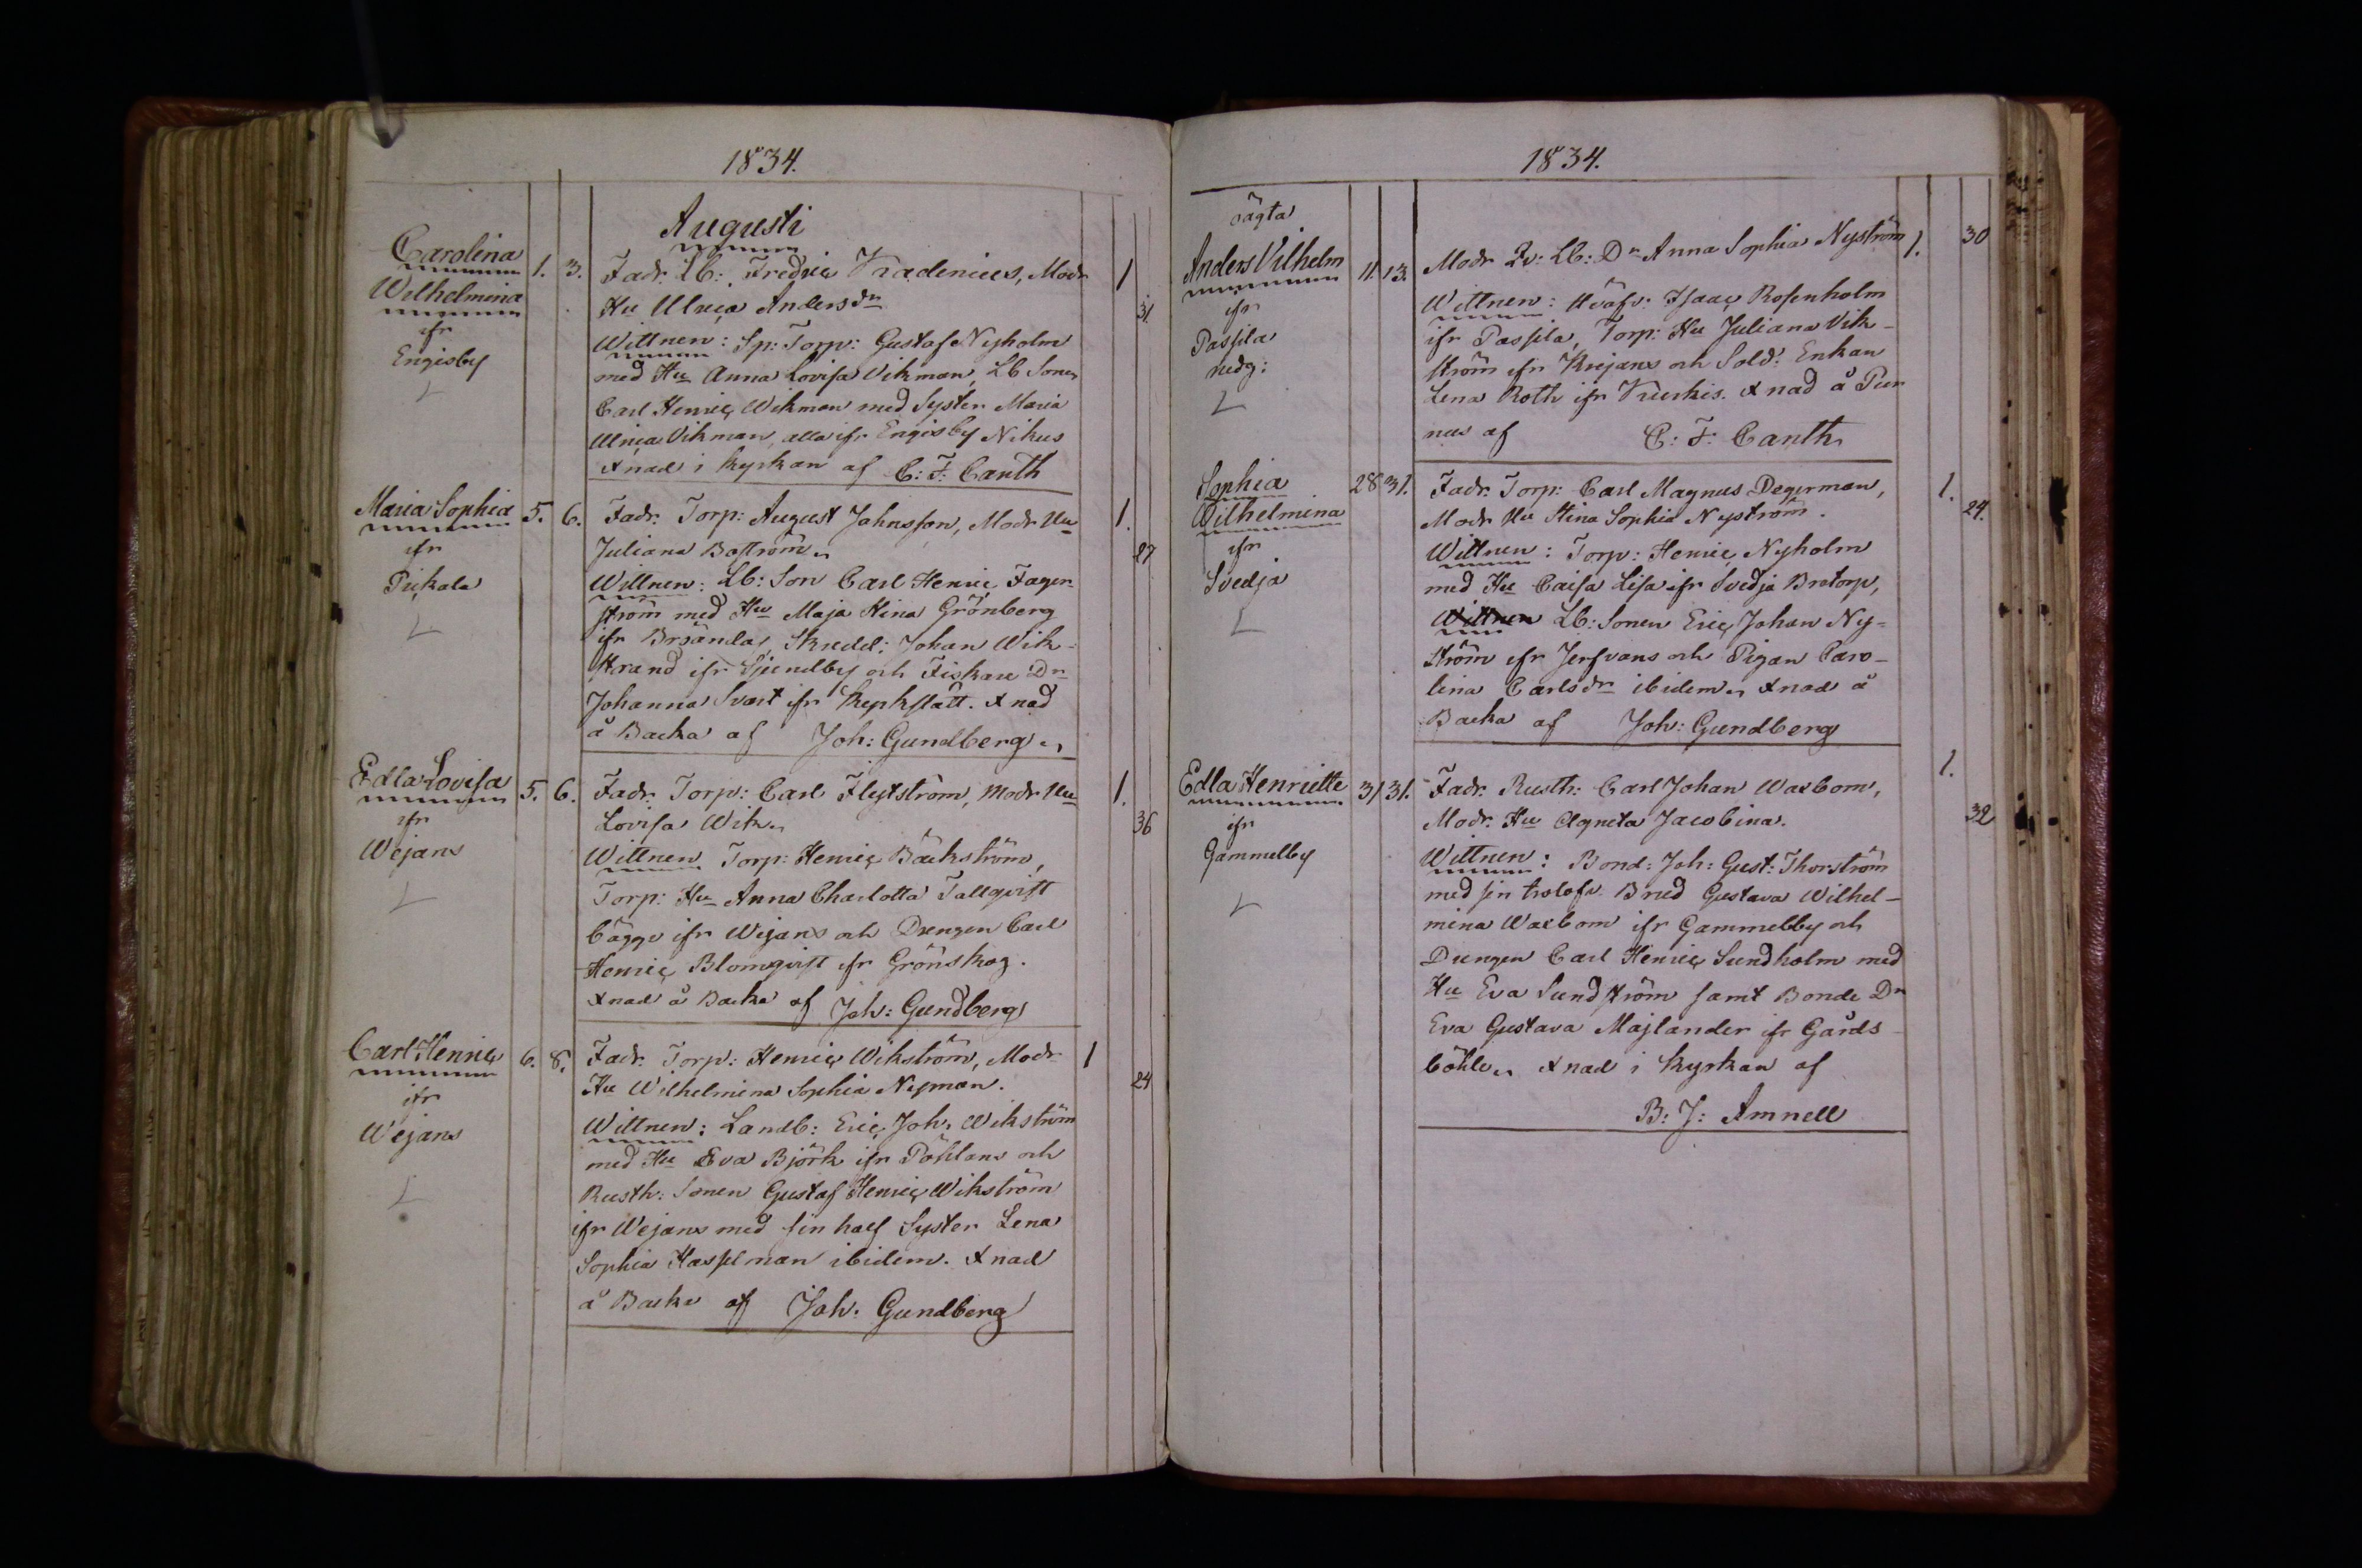 1834.
Augusti
Carolina 1. 3. Fadr. Lb: Fredric Vradenius, Modr 1
Wilhelmina Hu Ulrica Andersdr 31
ifr Wittnen: Sp: Torp: Gustaf Nyholm
Engisby med Hu Anna Lovisa Vikman, Lb Sonen
Carl Henric Wikman med Syster Maria
Ulrica Vikman, alla ifr Engisby Nikus
Xnad i kyrkan af C: F: Canth
Maria Sophia 5. 6. Fadr. Torp: August Johnsson, Modr Hu 1.
ifr Juliana Boström 27
Pickala Wittnen: Lb: Son Carl Henric Fager-
ström med Hu Maja Stina Grönberg
ifr Brsända, Skredd: Johan Wik-
strand ifr Sjundby och Fiskare Dr
Johanna Svart ifr Kyrkslätt. Xnad
å Backa af Joh: Gundberg
Edla Lovisa 5. 6. Fadr. Torp: Carl Flytström, Modr Hu 1.
ifr Lovisa Wik 36
Wejans Wittnen Torp: Henric Bäckström,
Torp: Hu Anna Charlotta Tallqvist
bägge ifr Wejans och Drengen Carl
Henric Blomqvist ifr Grönskog.
Xnad å Backa af Joh: Gundberg
Carl Henric 6. 8. Fadr. Torp: Henric Wikström, Modr 1
ifr Hu Wilhelmina Sophia Nyman. 24
Wejans Wittnen: Landb: Eric Joh. Wikström
med Hu Eva Björk ifr Påhlans och
Rusth: Sonen Gustaf Henric Wikström
ifr Wejans med sin half Syster Lena
Sophia Hasselman ibidem. Xnad
å Backa af Joh. Gundberg
1834.
oägta
Anders Vilhelm 11. 13. Modr Qv: Lb: Dr Anna Sophia Nyström 1. 30
ifr Wittnen: Uväfv: Isaac Rosenholm
Passila ifr Passila, Torp: Hu Juliana Vik-
nedg: ström ifr Krejans och Sold: Enkan
Lena Roth ifr Kurkis. Xnad å Pur
nus af C: F: Canth
Sophia 28 31. Fadr. Torp: Carl Magnus Degerman, 1.
Wilhelmina Modr Hu Stina Sophia Nyström. 24.
ifr Wittnen: Torp: Henric Nyholm
Svedja med Hu Caisa Lisa ifr Svedja Brotorp,
Wittnen Lb: Sonen Eric Johan Ny-
ström ifr Jerfvans och Pigan Caro-
lina Carlsdr ibidem Xnad å
Backa af Joh: Gundberg
Edla Henriette 31 31. Fadr. Rusth: Carl Johan Waxbom, 1.
ifr Modr. Hu Agneta Jacobina. 32
Gammelby Wittnen: Bond: Joh: Gust: Thorström
med sin trolofv. Brud Gustava Wilhel-
mina Waxbom ifr Gammelby och
Drengen Carl Henric Sundholm med
Hu Eva Sundström samt Bonde Dr
Eva Gustava Majlander ifr Gårds-
böhle Xnad i kyrkan af
B: J: Amnell